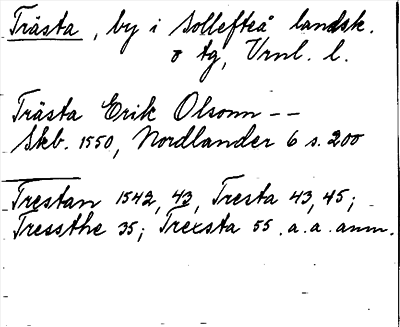 Trästa, by i Sollefteå landsk.
o tg, Vrnl. l.
Trästa Erik Olsonn --
Skb. 1550, Nordlander 6 s. 200
Trestan 1542, 43, Tresta 43, 45;
Tressthe 35; Trexsta 55. a. a. anm.